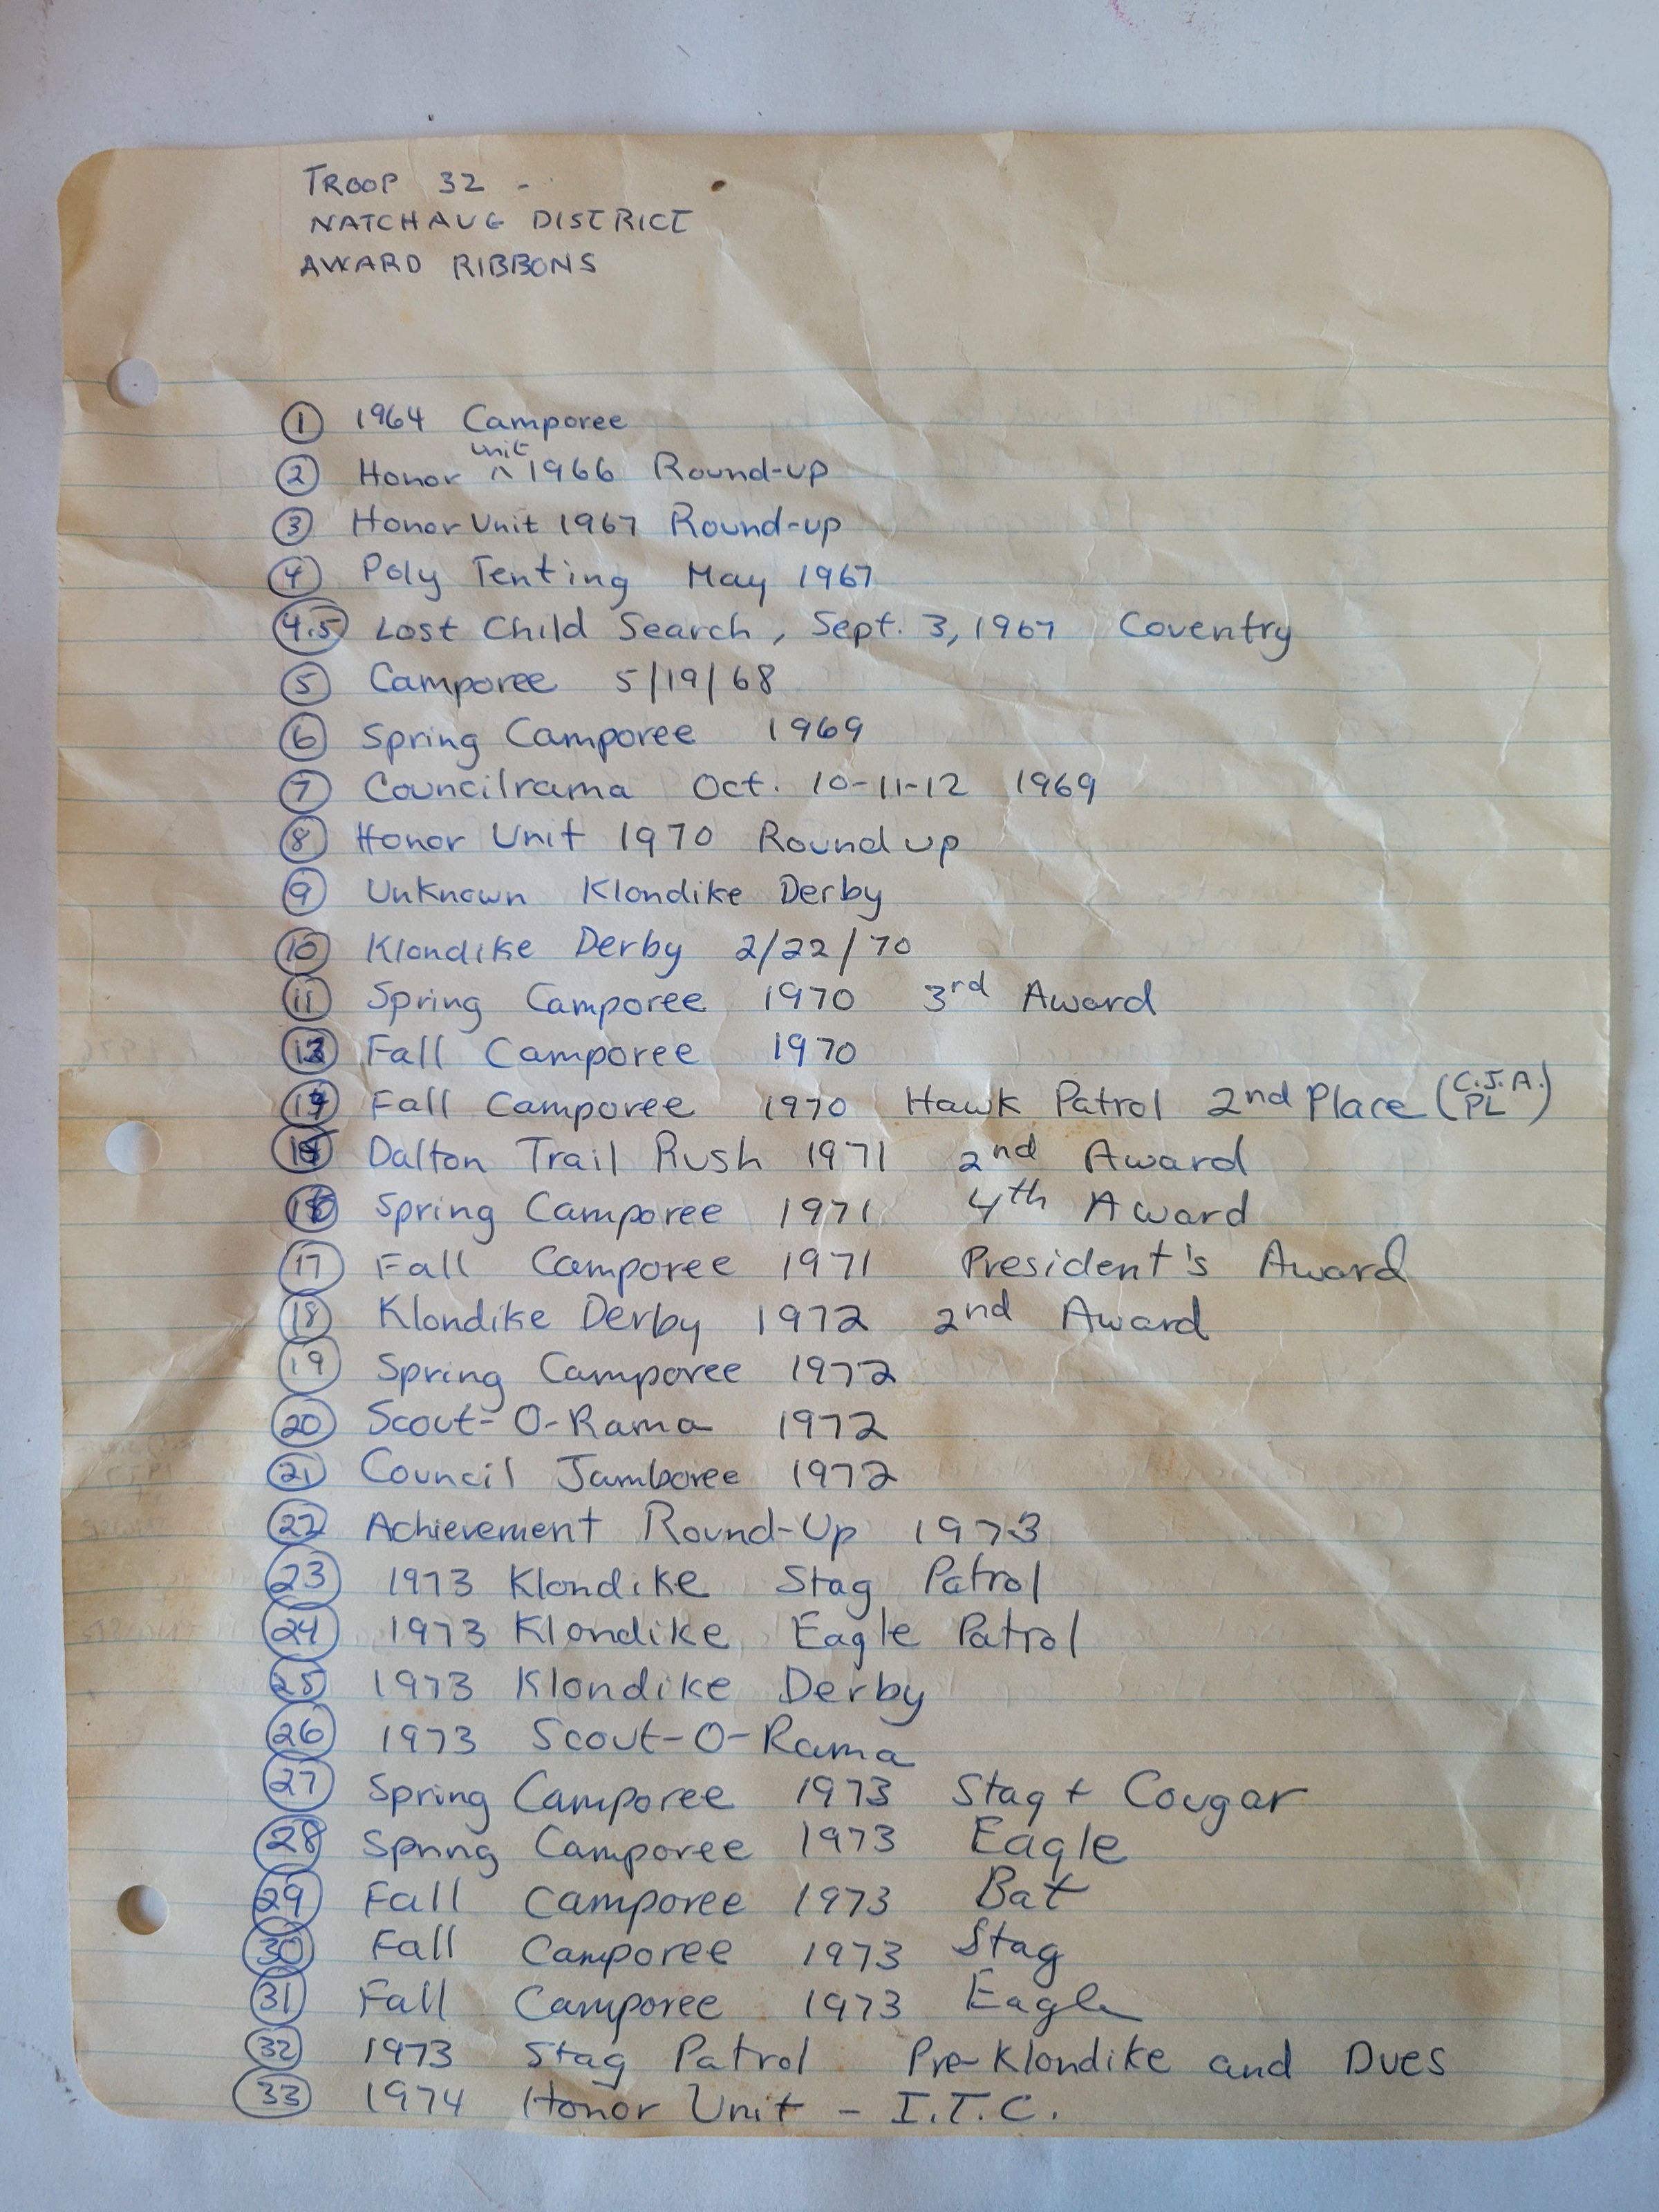 TROOP 32 -
NATCHAUG DISTRICT
AWARD RIBBONS
1 1964 Camporee
2 Honor unit ^ 1966 Round-up
3 Honor Unit 1967 Round-up
4 Poly Tenting May 1967
4.5 Lost Child Search, Sept. 3, 1967 Coventry
5 Camporee 5/19/68
6 Spring Camporee 1969
7 Councilrama Oct. 10-11-12 1969
8 Honor Unit 1970 Round up
9 Unknown Klondike Derby
10 Klondike Derby 2/22/70
11 Spring Camporee 1970 3rd Award
Fall Camporee 1970
Fall Camporee 1970 Hawk Patrol 2nd Place (C.J.A. PL)
Dalton Trail Rush 1971 2nd Award
Spring Camporee 1971 4th Award
17 Fall Camporee 1971 President's Award
18 Klondike Derby 1972 2nd Award
19 Spring Camporee 1972
20 Scout-O-Rama 1972
21 Council Jamboree 1972
22 Achievement Round-Up 1973
23 1973 Klondike Stag Patrol
24 1973 Klondike Eagle Patrol
25 1973 Klondike Derby
26 1973 Scout-O-Rama
27 Spring Camporee 1973 Stag + Cougar
28 Spring Camporee 1973 Eagle
29 Fall Camporee 1973 Bat
30 Fall Camporee 1973 Stag
31 Fall Camporee 1973 Eagle
32 1973 Stag Patrol Pre-Klondike and Dues
33 1974 Honor Unit - I.T.C.